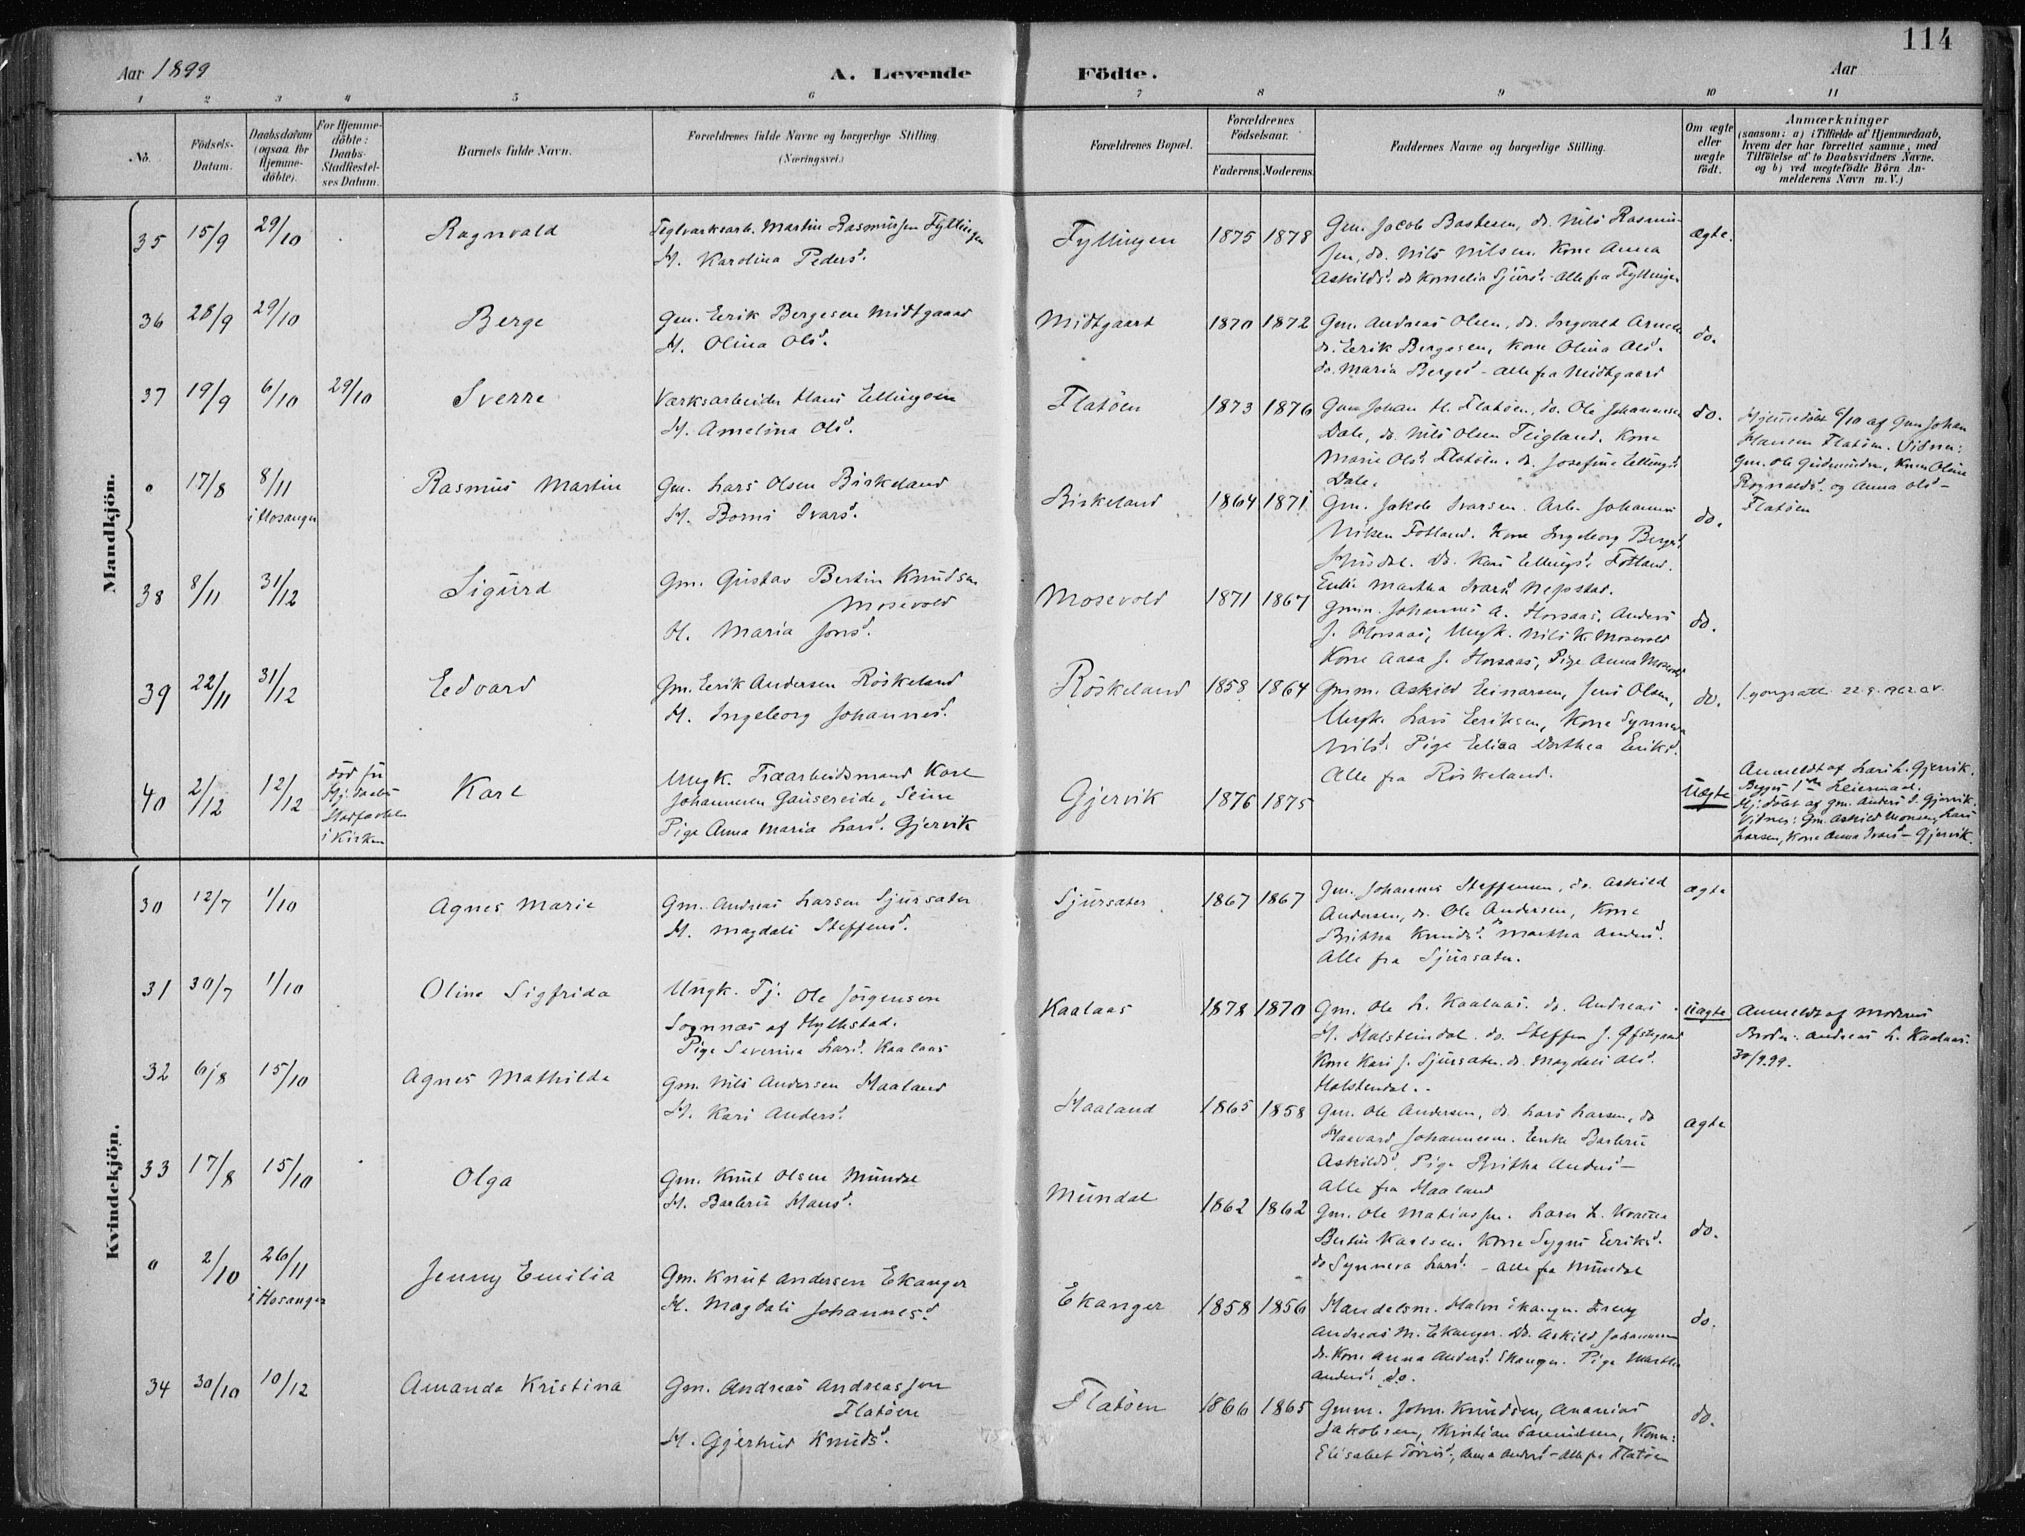 114
Aar 1899
A. Levende Födte.
Aar
1 2 3 4 5 6 7 8 9 10 11
No.
Födsels-Datum.
Daabsdatum (ogsaa for Hjemme-döbte).
For Hjemme-döbte: Daabs-Stadfæstel-ses Datum.
Barnets fulde Navn.
Forældrenes fulde Navne og borgerlige Stilling. (Næringsvei.)
Forældrenes Bopæl.
Forældrenes Födselsaar.
Faderens. Moderens.
Faddernes Navne og borgerlige Stilling.
Om ægte eller uægte födt.
Anmærkninger
(saasom: a) i Tilfælde af Hjemmedaab,
hvem der har forrettet samme, med
Tilföielse af to Daabsvidners Navne.
og b) ved uegtefödte Börn An-
melderens Navn m. V.)
Mandkjön.
35 15/9 29/10 Ragnvald
Teglværksarb. Martin Rasmussen Fyllingen
H. Karolina Pedersd.
Fyllingen 1875 1878
Gm. Jacob Bastesen, do. Nils Rasmus-
sen, do. Nils Nilsen, Kone Anna
Askildsd. do Kornelia Sjursd. - alle fra Fyllingen
ægte.
36 28/9 29/10 Berge
Gm. Eerik Bergesen Midtgaard
H. Olina Olsd.
Midtgaard 1870 1872
Gm. Andreas Olsen, do. Ingvald
do. Eerik Bergesen, Kone Olina Olsd.
do. Maria Bergesd - alle fra Midtgaard
do.
37 19/9 6/10 29/10 Sverre
Værksarbeider Hans Ellingsen
H. Amelina Olsd.
Flatöen 1873 1876
Gm Johan H. Flatöen, do. Ole Johannesen
Dale, do. Nils Olsen Teigland. Kone
Marie Olsd. Flatöen. do. Josefine Ellingsd.
Dale.
do.
Hjemmedöbt 6/10 af Gm Johan
Hansen Flatöen. Vidner:
Gm. Ole Gudmundsen, Kone Oline
Rognaldsd. og Anna Olsd -
Flatöen
" 17/8 8/11 i Hosanger Rasmus Martin
Gm. Lars Olsen Birkeland
H. Borni Ivarsd.
Birkeland 1864 1871
Gm. Jakob Ivarsen. Arb. Johannes
Nilsen Fotland. Kone Ingeborg Bergesd.
do. Kari Ellingsd. Fotland.
Enke Martha Ivarsd. Nepstad.
do.
38 8/11 31/12 Sigurd
Gm. Gustav Bertin Knudsen
Mosevold
H. Maria Jonsd.
Mosevold 1871 1867
Gmm. Johannes A. Horsaas, Anders
J. Horsaas, Ungk. Nils K. Mosevold
Kone Aasa J. Horsaas, Pige Anna Mosevold
do.
39 22/11 31/12 Edvard
Gm. Eerik Andersen Röskeland
H. Ingeborg Johannesd.
Röskeland 1858 1864
Gmm. Askild Einarsen, Jens Olsen,
Ungk. Lars Eeriksen, Kone Synneva
Nilsd. Pige Elina Dorthea Eeriksd.
Alle fra Röskeland.
do.
22.9.1962
40 2/12 12/12
död för
Hj. daabs
Stadfæstelse
i Kirken
Karl
Ungk. Træarbeidsmand Karl
Johannesen Gausereide, Seim
Pige Anna Maria Larsd. Gjervik
Gjervik 1876 1875 Uægte
Anmeldt af Lars L. Gjervik.
Begges 1ste Leiermaal.
Hj. döbt af gm. Anders I. Gjervik.
Vidner: Gm. Askild Monsen, Lars
Larsen, Kone Anna Ivarsd - Gjervik.
Kvindekjön.
30 12/7 1/10 Agnes Marie
Gm. Andreas Larsen Sjursæter
H. Magdali Steffensd.
Sjursæter 1867 1867
Gm. Johannes Steffensen, do. Askild
Andersen, do. Ole Andersen, Kone
Britha Knudsd. do Martha Andersd.
Alle fra Sjursæter.
ægte
31 30/7 1/10 Oline Sigfrida
Ungk. Tj. Ole Jörgensen
Sognnæs af Hylkstad.
Pige Severina Larsd. Kaalaas
Kaalaas 1878 1870
Gm. Ole L. Kaalaas. do. Andreas
H. Holsteindal. do. Steffen J.
Kone Kari J. Sjursæter. do. Magdali Olsd.
Holstendal.
Uægte
Anmeldt af Moderens
Broder: Andreas L. Kaalaas.
30/9.99.
32 6/8 15/10 Agnes Mathilde
Gm. Nils Andersen Haaland
H. Kari Andersd.
Haaland 1865 1858
Gm. Ole Andersen, do. Lars Larsen, do
Haavard Johannesen. Enke Barbru
Askildsd. Pige Britha Andersd -
Alle fra Haaland
ægte
33 17/8 15/10 Olga
Gm. Knut Olsen Mundal
H. Barbru Hansd.
Mundal 1862 1862
Gm. Ole Matiassen. Lars L.
Bertin Karlsen. Kone Sygni Eeriksd.
do Synneva Larsd. - alle fra Mundal
do.
" 2/10 26/11 i Hosanger Jenny Emilia
Gm. Knut Andersen Ekanger
H. Magdali Johannesd.
Ekanger 1858 1856
Handelsm. Halvor Ekanger. Dreng
Andreas M. Ekanger. Do. Askild Johannesen
do. Kone Anna Andersd. Ekanger. Pige Martha
Andersd do.
do.
34 30/10 10/12 Amanda Kristina
Gm. Andreas Andreassen
Flatöen
H. Gjertrud Knudsd.
Flatöen 1866 1865
Gmm. John Knudsen, Ananias
Jakobsen, Kristian Samuelsen, Koner:
Elisabet, Anna Andersd - alle fra Flatöen
do.